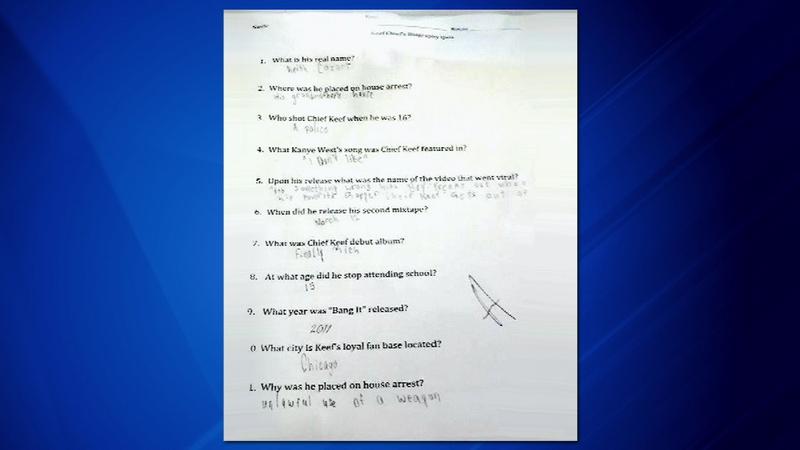 Name
Keef Chief's Biography Quiz
1. What is his real name?
Keith Cozart
2. Where was he placed on house arrest?
His grandmothers house
3. Who shot Chief Keef when he was 16?
A police
4. What Kanye West's song was Chief Keef featured in?
"I Don't like"
5. Upon his release what was the name of the video that went viral?
something wrong kid
his favorite rapper Chief Keef Gets out of
6. When did he release his second mixtape?
March 12
7. What was Chief Keef debut album?
Finally Rich
8. At what age did he stop attending school?
15
9. What year was "Bang It" released?
2011
0 What city is Keef's loyal fan base located?
Chicago
1. Why was he placed on house arrest?
unlawful use of a weapon
A